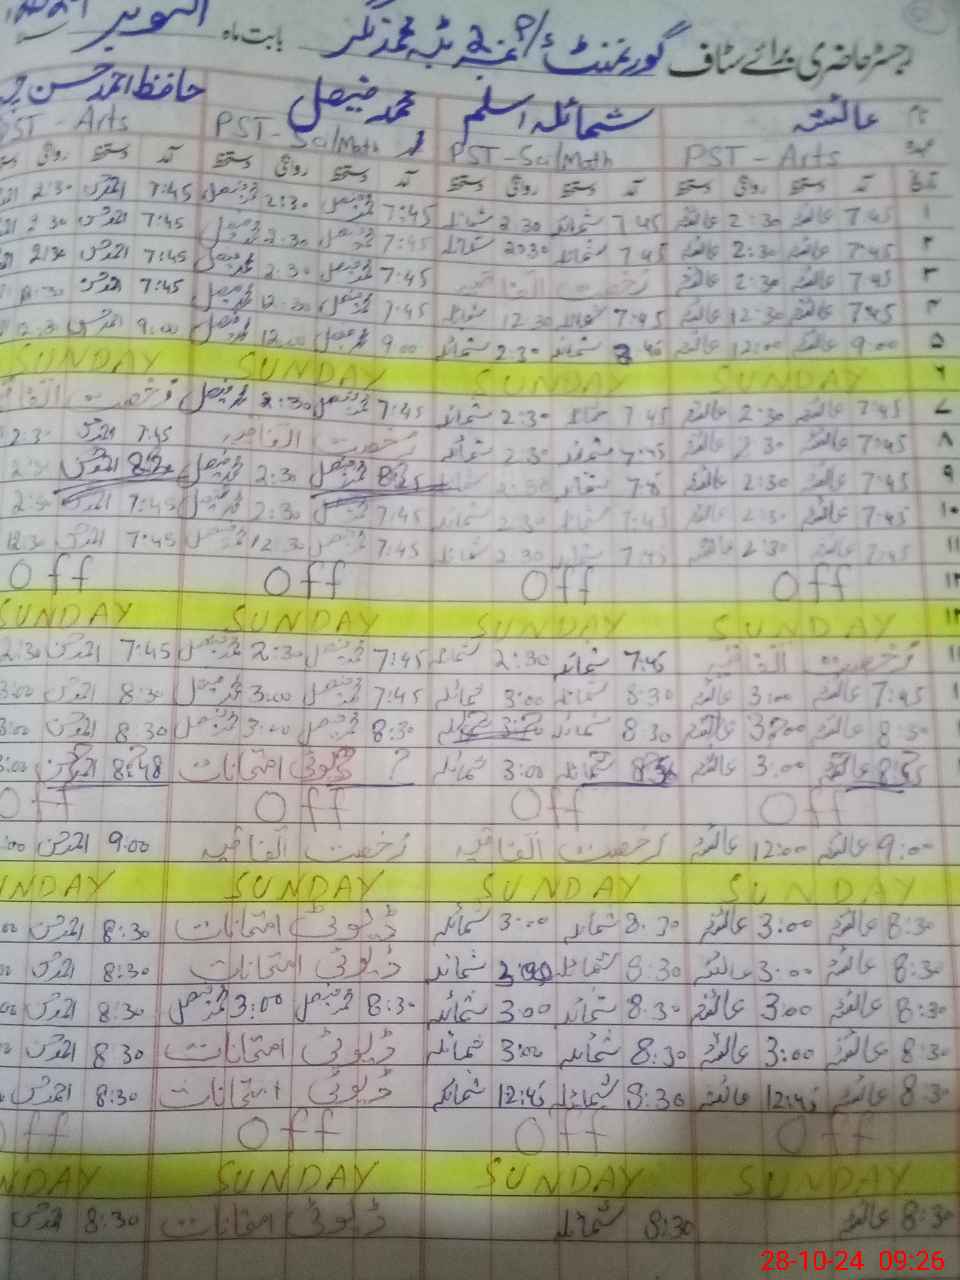 رجسٹر حاضری برائے سٹاف گورنمنٹ بابت ماہ اکتوبر
نام عائشہ شمائلہ اسلم محمد فیصل حافظ احمد حسن
عہدہ PST - Arts PST - Sci/Math PST - Sci/Math PST - Arts
تاریخ آمد دستخط روانگی دستخط آمد دستخط روانگی دستخط آمد دستخط روانگی دستخط آمد دستخط روانگی
۱ 7:45 عائشہ 2:30 عائشہ 7 45 شمائلہ 2 30 شمائلہ 7:45 محمد فیصل 2:30 محمد فیصل 7:45 احمد حسن 2:30
۲ 7:45 عائشہ 2:30 عائشہ 7 45 شمائلہ 2030 شمائلہ 7:45 محمد فیصل 2:30 محمد فیصل 7:45 احمد حسن 2 30
۳ 7:45 عائشہ 2:30 عائشہ رخصت اتفاقیہ 7:45 محمد فیصل 2:30 محمد فیصل 7:45 احمد حسن 2:30
۴ 7:45 عائشہ 12:30 عائشہ 7:45 شمائلہ 12:30 شمائلہ 7:45 محمد فیصل 12:30 محمد فیصل 7:45 احمد حسن 12:30
۵ 9:00 عائشہ 12:00 عائشہ شمائلہ 2:30 شمائلہ 9:00 محمد فیصل 12:00 محمد فیصل 9:00 احمد حسن
۶ SUNDAY SUNDAY SUNDAY SUNDAY
۷ 7:45 عائشہ 2:30 عائشہ 7 45 شمائلہ 2:30 شمائلہ 7:45 محمد فیصل 2:30 محمد فیصل رخصت اتفاقیہ
۸ 7:45 عائشہ 2:30 عائشہ 7:45 شمائلہ 2:30 شمائلہ رخصت اتفاقیہ 7:45 احمد حسن 2:30
۹ 7:45 عائشہ 2:30 عائشہ شمائلہ 2:30 شمائلہ 8:25 محمد فیصل 2:30 محمد فیصل احمد حسن 2:30
۱۰ 7:45 عائشہ 2:30 عائشہ 7:45 شمائلہ 2:30 شمائلہ 7:45 محمد فیصل 2:30 محمد فیصل 7:45 احمد حسن 2:30
۱۱ 7:45 عائشہ 2:30 عائشہ 7:45 شمائلہ 2:30 شمائلہ 7:45 محمد فیصل 12:30 محمد فیصل 7:45 احمد حسن 12:30
۱۲ Off Off Off Off
۱۳ SUNDAY SUNDAY SUNDAY SUNDAY
رخصت اتفاقیہ 7:45 شمائلہ 2:30 شمائلہ 7:45 محمد فیصل 2:30 محمد فیصل 7:45 احمد حسن 2:30
7:45 عائشہ 3:00 عائشہ 8:30 شمائلہ 3:00 شمائلہ 7:45 محمد فیصل 3:00 محمد فیصل 8:30 احمد حسن 3:00
8:30 عائشہ 3:00 عائشہ 8:30 شمائلہ شمائلہ 8:30 محمد فیصل 3:00 محمد فیصل 8:30 احمد حسن 3:00
عائشہ 3:00 عائشہ شمائلہ 3:00 شمائلہ ? ڈیوٹی امتحانات 8:48 احمد حسن 3:00
Off Off Off Off
9:00 عائشہ 12:00 عائشہ رخصت اتفاقیہ رخصت اتفاقیہ 9:00 احمد حسن :00
SUNDAY SUNDAY SUNDAY NDAY
8:30 عائشہ 3:00 عائشہ 8:30 شمائلہ 3:00 شمائلہ ڈیوٹی امتحانات 8:30 احمد حسن 00
8:30 عائشہ 3:00 عائشہ 8:30 شمائلہ 3:00 شمائلہ ڈیوٹی امتحانات 8:30 احمد حسن 00
8:30 عائشہ 3:00 عائشہ 8:30 شمائلہ 3:00 شمائلہ 8:30 محمد فیصل 3:00 محمد فیصل 8:30 احمد حسن 00
8:30 عائشہ 3:00 عائشہ 8:30 شمائلہ 3:00 شمائلہ ڈیوٹی امتحانات 8:30 احمد حسن 00
8:30 عائشہ 12:45 عائشہ 8:30 شمائلہ 12:45 شمائلہ ڈیوٹی امتحانات 8:30 احمد حسن
Off Off Off ff
SUNDAY SUNDAY SUNDAY NDAY
8:30 عائشہ 8:30 شمائلہ ڈیوٹی امتحانات 8:30 احمد حسن
28-10-24 09:26